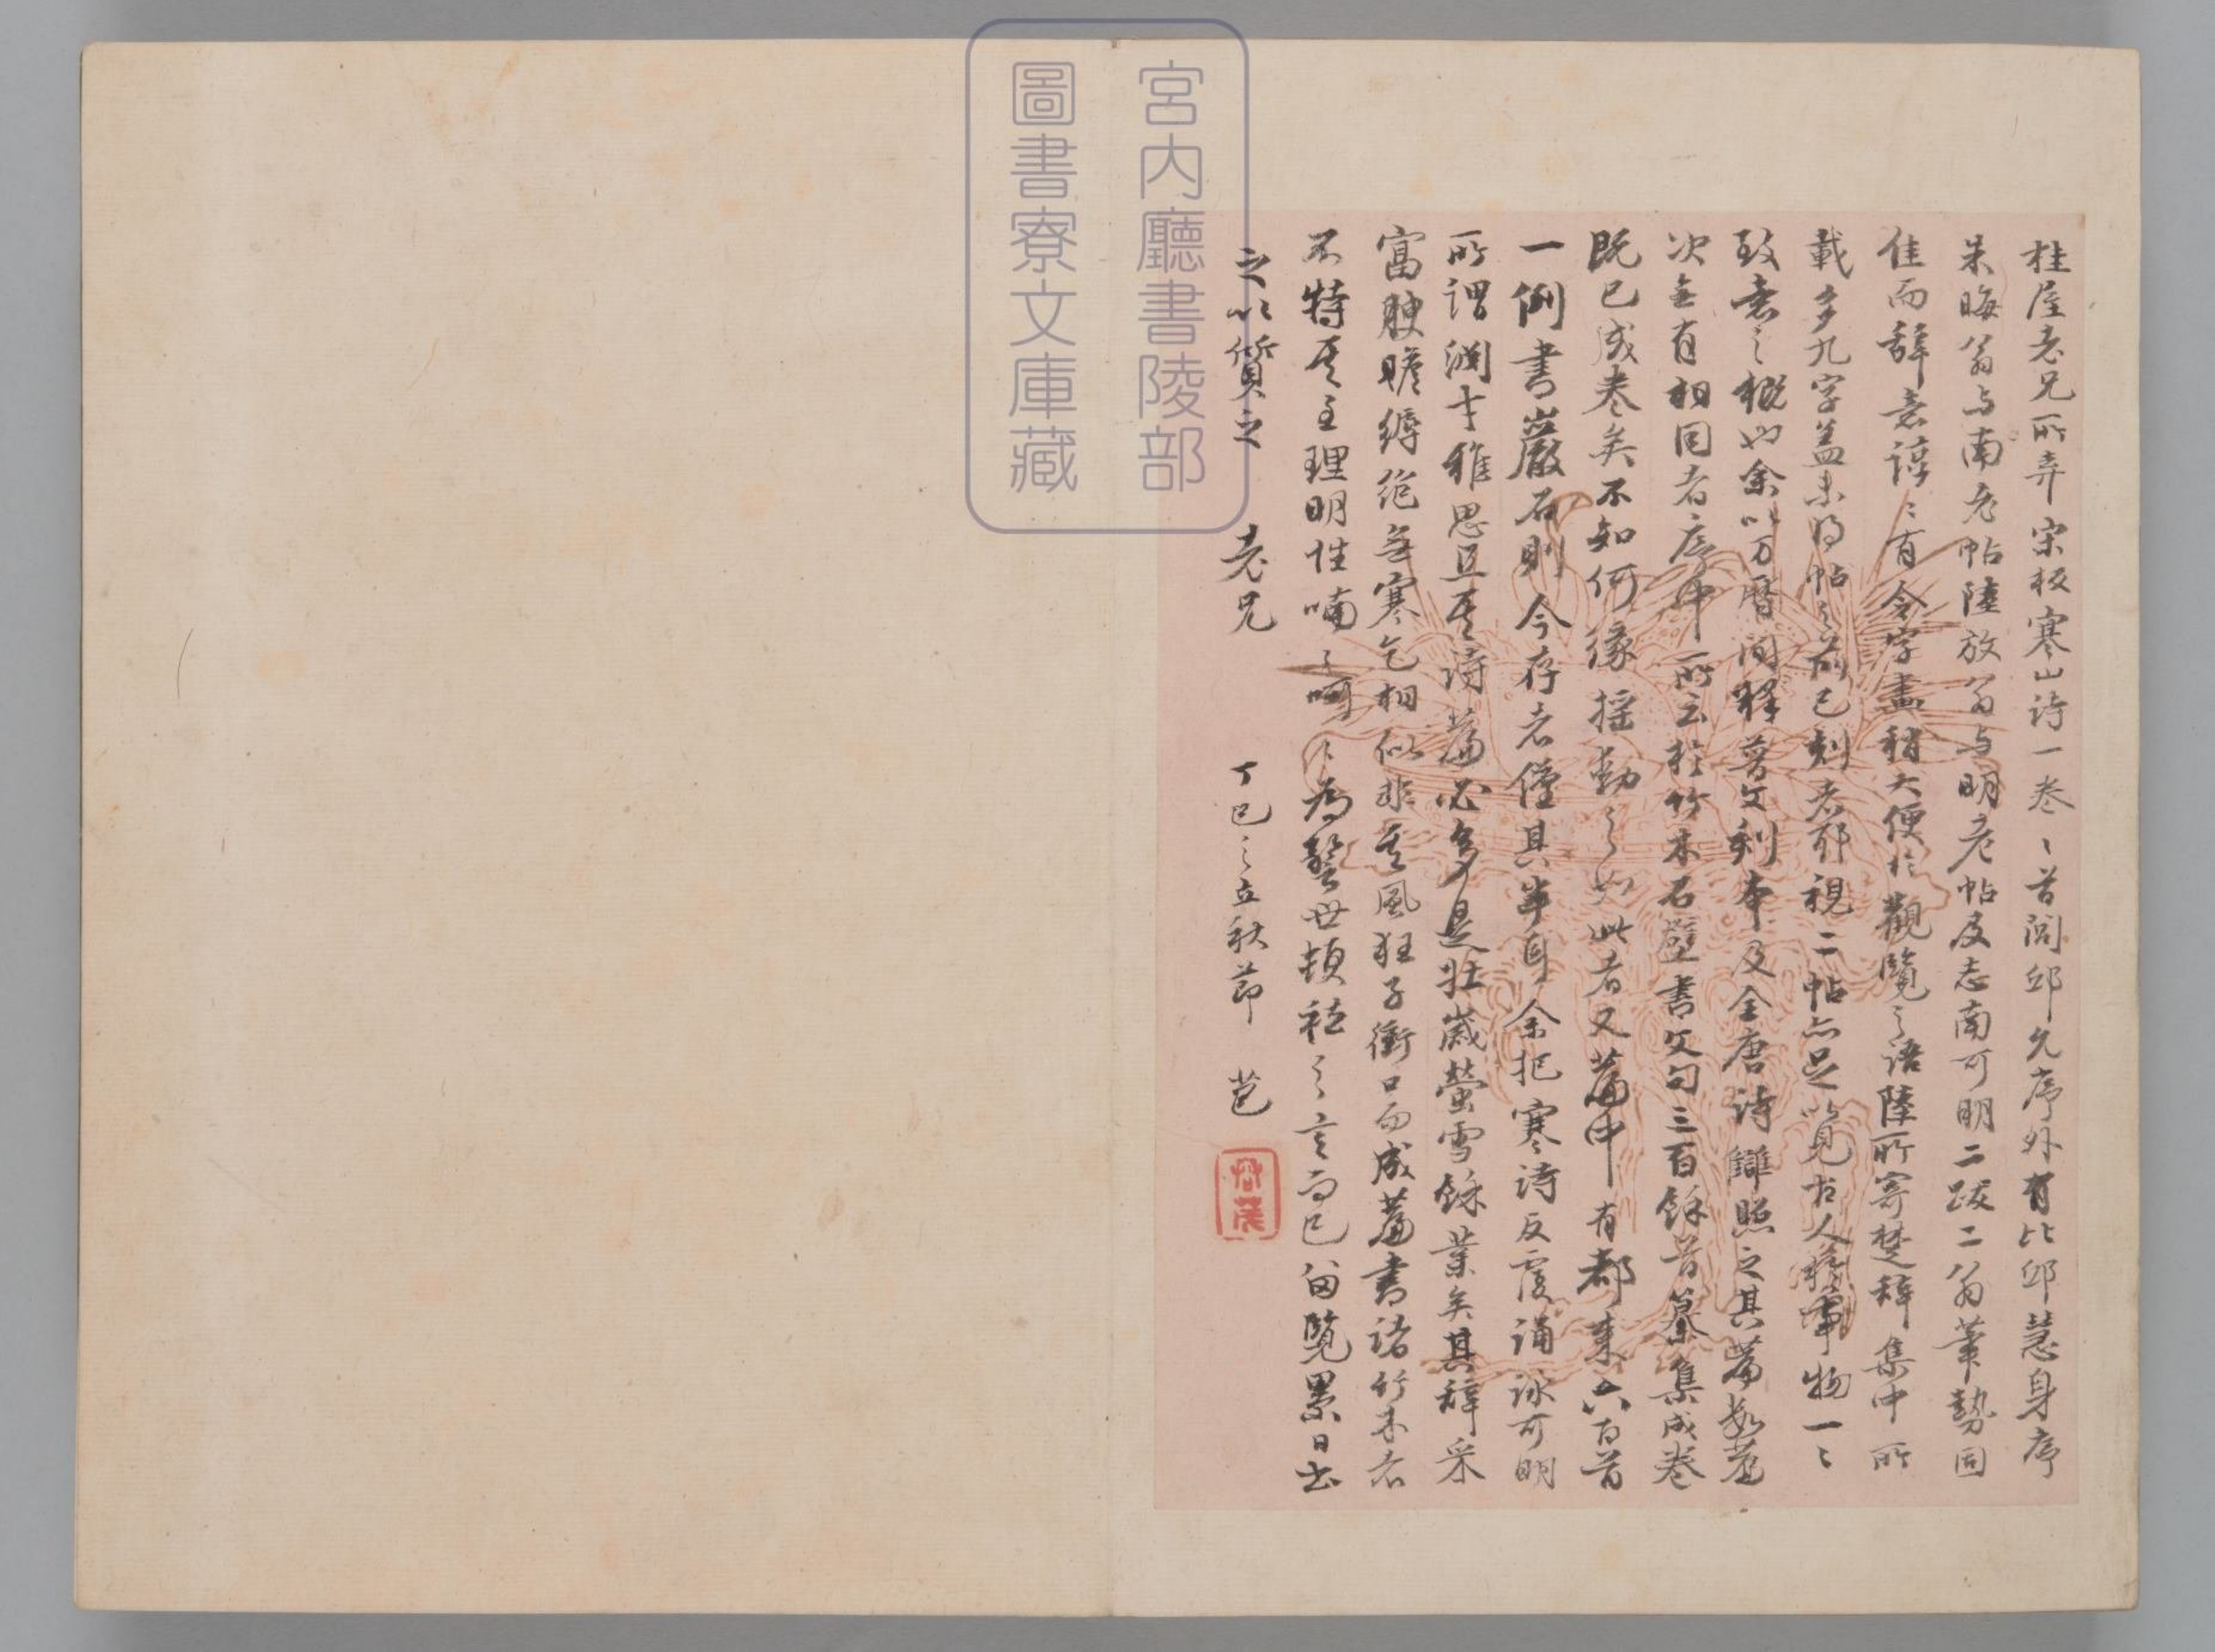 桂屋老兄所弆宋板寒山詩一卷〻首閭邱允序外有比邱慧身序
朱晦翁与南老帖陸放翁与明老帖及志南可明二跋二翁筆勢固
佳而辞意諄〻有令字畫稍大便於觀覽之語陸所寄楚辞集中所
載多九字蓋未得帖之前已刻者耶視二帖亦足以見古人事物一〻
致意之概也余以万曆間释普文刻本及全唐詩讎照之其篇数篇
次無有相同者序中所云於竹木石壁書文句三百餘首纂集成卷
既已成卷矣不知何緣摇動之如此者又篇中有都来六百首
一例書巖石則今存者僅其半耳余把寒詩反覆诵詠可明
所謂渊才雅思且其詩篇必多是壯歲螢雪餘業矣其辞采
富腴贍縟絶無寒乞相似非其風狂子衝口而成篇書諸竹木者
不特其至理明性喃〻呵〻為警世頓祛之言而已留覽累日書
之以質之 老兄 丁巳之立秋節 苞
宮内廳書陵部
圖書寮文庫藏